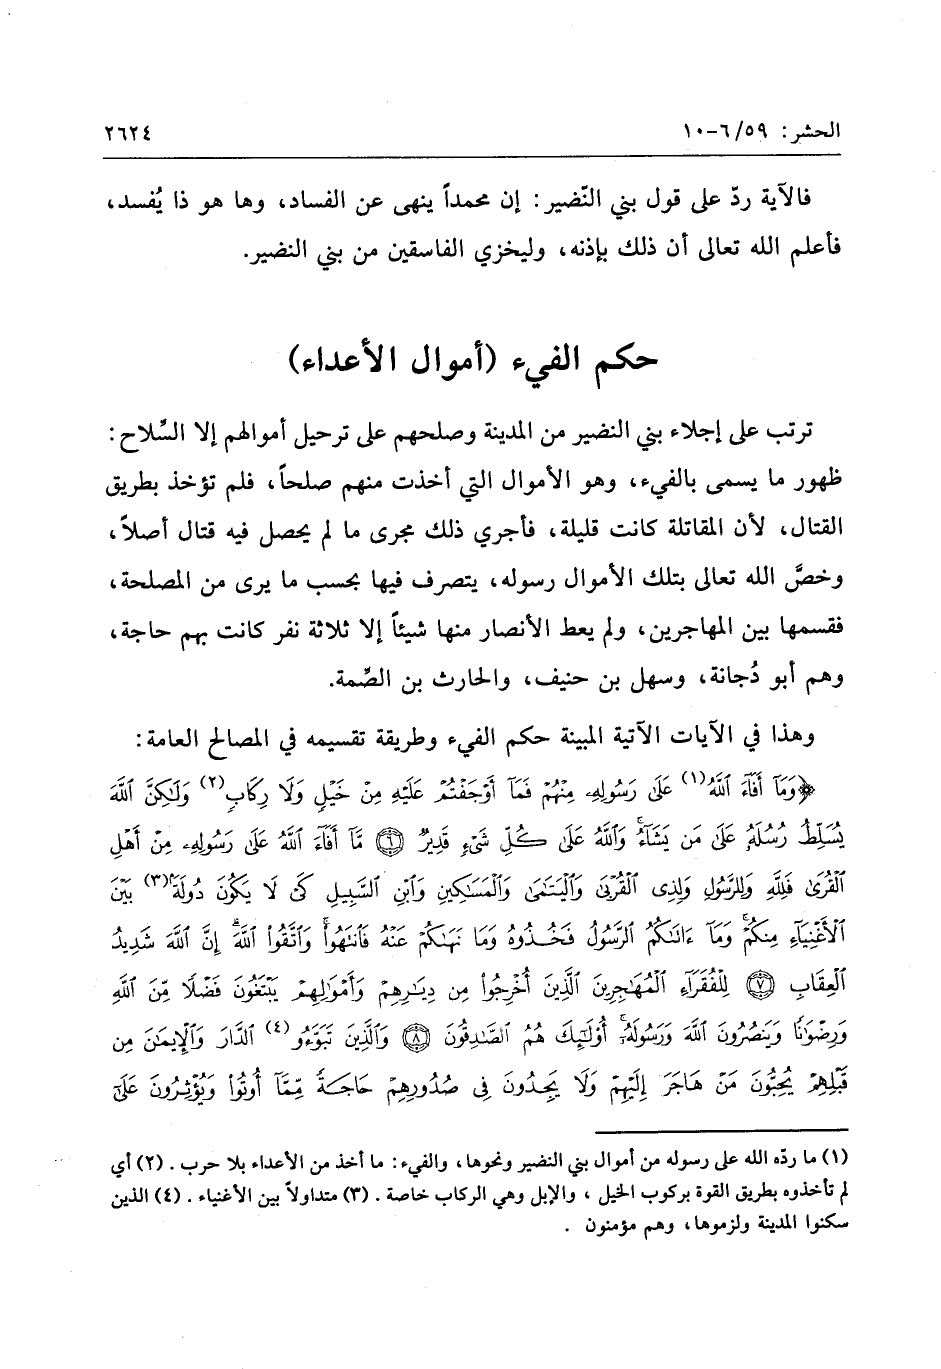 الحشر: ٥٩/ ٦-١٠ ٢٦٢٤
فالآية ردّ على قول بني النّضير: إن محمداً ينهى عن الفساد، وها هو ذا يُفسد،
فأعلم الله تعالى أن ذلك بإذنه، وليخزي الفاسقين من بني النضير.
حكم الفيء (أموال الأعداء)
ترتب على إجلاء بني النضير من المدينة وصلحهم على ترحيل أموالهم إلا السِّلاح:
ظهور ما يسمى بالفيء، وهو الأموال التي أخذت منهم صلحاً، فلم تؤخذ بطريق
القتال، لأن المقاتلة كانت قليلة، فأجري ذلك مجرى ما لم يحصل فيه قتال أصلاً،
وخصَّ الله تعالى بتلك الأموال رسوله، يتصرف فيها بحسب ما يرى من المصلحة،
فقسمها بين المهاجرين، ولم يعط الأنصار منها شيئاً إلا ثلاثة نفر كانت بهم حاجة،
وهم أبو دُجانة، وسهل بن حنيف، والحارث بن الصِّمة.
وهذا في الآيات الآتية المبينة حكم الفيء وطريقة تقسيمه في المصالح العامة:
﴿وَمَآ أَفَآءَ ٱللَّهُ(١) عَلَىٰ رَسُولِهِۦ مِنْهُمْ فَمَآ أَوْجَفْتُمْ عَلَيْهِ مِنْ خَيْلٍ وَلَا رِكَابٍ(٢) وَلَٰكِنَّ ٱللَّهَ
يُسَلِّطُ رُسُلَهُۥ عَلَىٰ مَن يَشَآءُ ۚ وَٱللَّهُ عَلَىٰ كُلِّ شَىْءٍ قَدِيرٌ ٦ مَّآ أَفَآءَ ٱللَّهُ عَلَىٰ رَسُولِهِۦ مِنْ أَهْلِ
ٱلْقُرَىٰ فَلِلَّهِ وَلِلرَّسُولِ وَلِذِى ٱلْقُرْبَىٰ وَٱلْيَتَٰمَىٰ وَٱلْمَسَٰكِينِ وَٱبْنِ ٱلسَّبِيلِ كَىْ لَا يَكُونَ دُولَةًۢ(٣) بَيْنَ
ٱلْأَغْنِيَآءِ مِنكُمْ ۚ وَمَآ ءَاتَىٰكُمُ ٱلرَّسُولُ فَخُذُوهُ وَمَا نَهَىٰكُمْ عَنْهُ فَٱنتَهُوا۟ ۚ وَٱتَّقُوا۟ ٱللَّهَ ۖ إِنَّ ٱللَّهَ شَدِيدُ
ٱلْعِقَابِ ٧ لِلْفُقَرَآءِ ٱلْمُهَٰجِرِينَ ٱلَّذِينَ أُخْرِجُوا۟ مِن دِيَٰرِهِمْ وَأَمْوَٰلِهِمْ يَبْتَغُونَ فَضْلًا مِّنَ ٱللَّهِ
وَرِضْوَٰنًا وَيَنصُرُونَ ٱللَّهَ وَرَسُولَهُۥٓ ۚ أُو۟لَٰٓئِكَ هُمُ ٱلصَّٰدِقُونَ ٨ وَٱلَّذِينَ تَبَوَّءُو(٤) ٱلدَّارَ وَٱلْإِيمَٰنَ مِن
قَبْلِهِمْ يُحِبُّونَ مَنْ هَاجَرَ إِلَيْهِمْ وَلَا يَجِدُونَ فِى صُدُورِهِمْ حَاجَةً مِّمَّآ أُوتُوا۟ وَيُؤْثِرُونَ عَلَىٰٓ
(١) ما ردّه الله على رسوله من أموال بني النضير ونحوها، والفيء: ما أخذ من الأعداء بلا حرب. (٢) أي
لم تأخذوه بطريق القوة بركوب الخيل، والإبل وهي الركاب خاصة. (٣) متداولاً بين الأغنياء. (٤) الذين
سكنوا المدينة ولزموها، وهم مؤمنون.